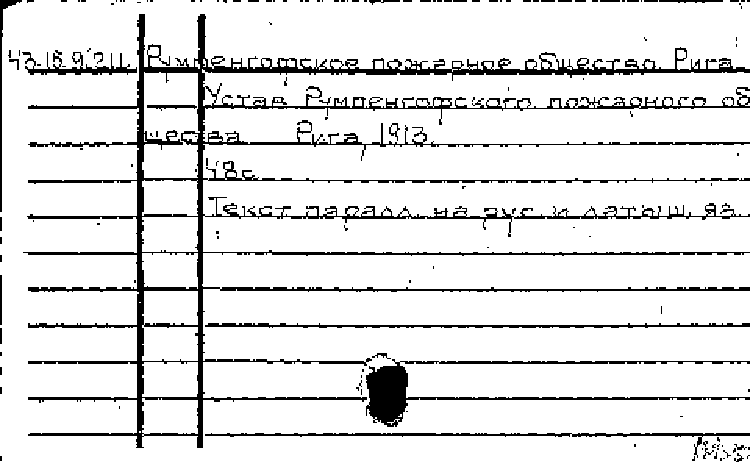 43-18.9.211. Румпенгофское пожарное общество. Рига.
Устав Румпенгофского пожарного об
щества. Рига, 1913.
48с.
Текст паралл. на рус. и латыш. яз.